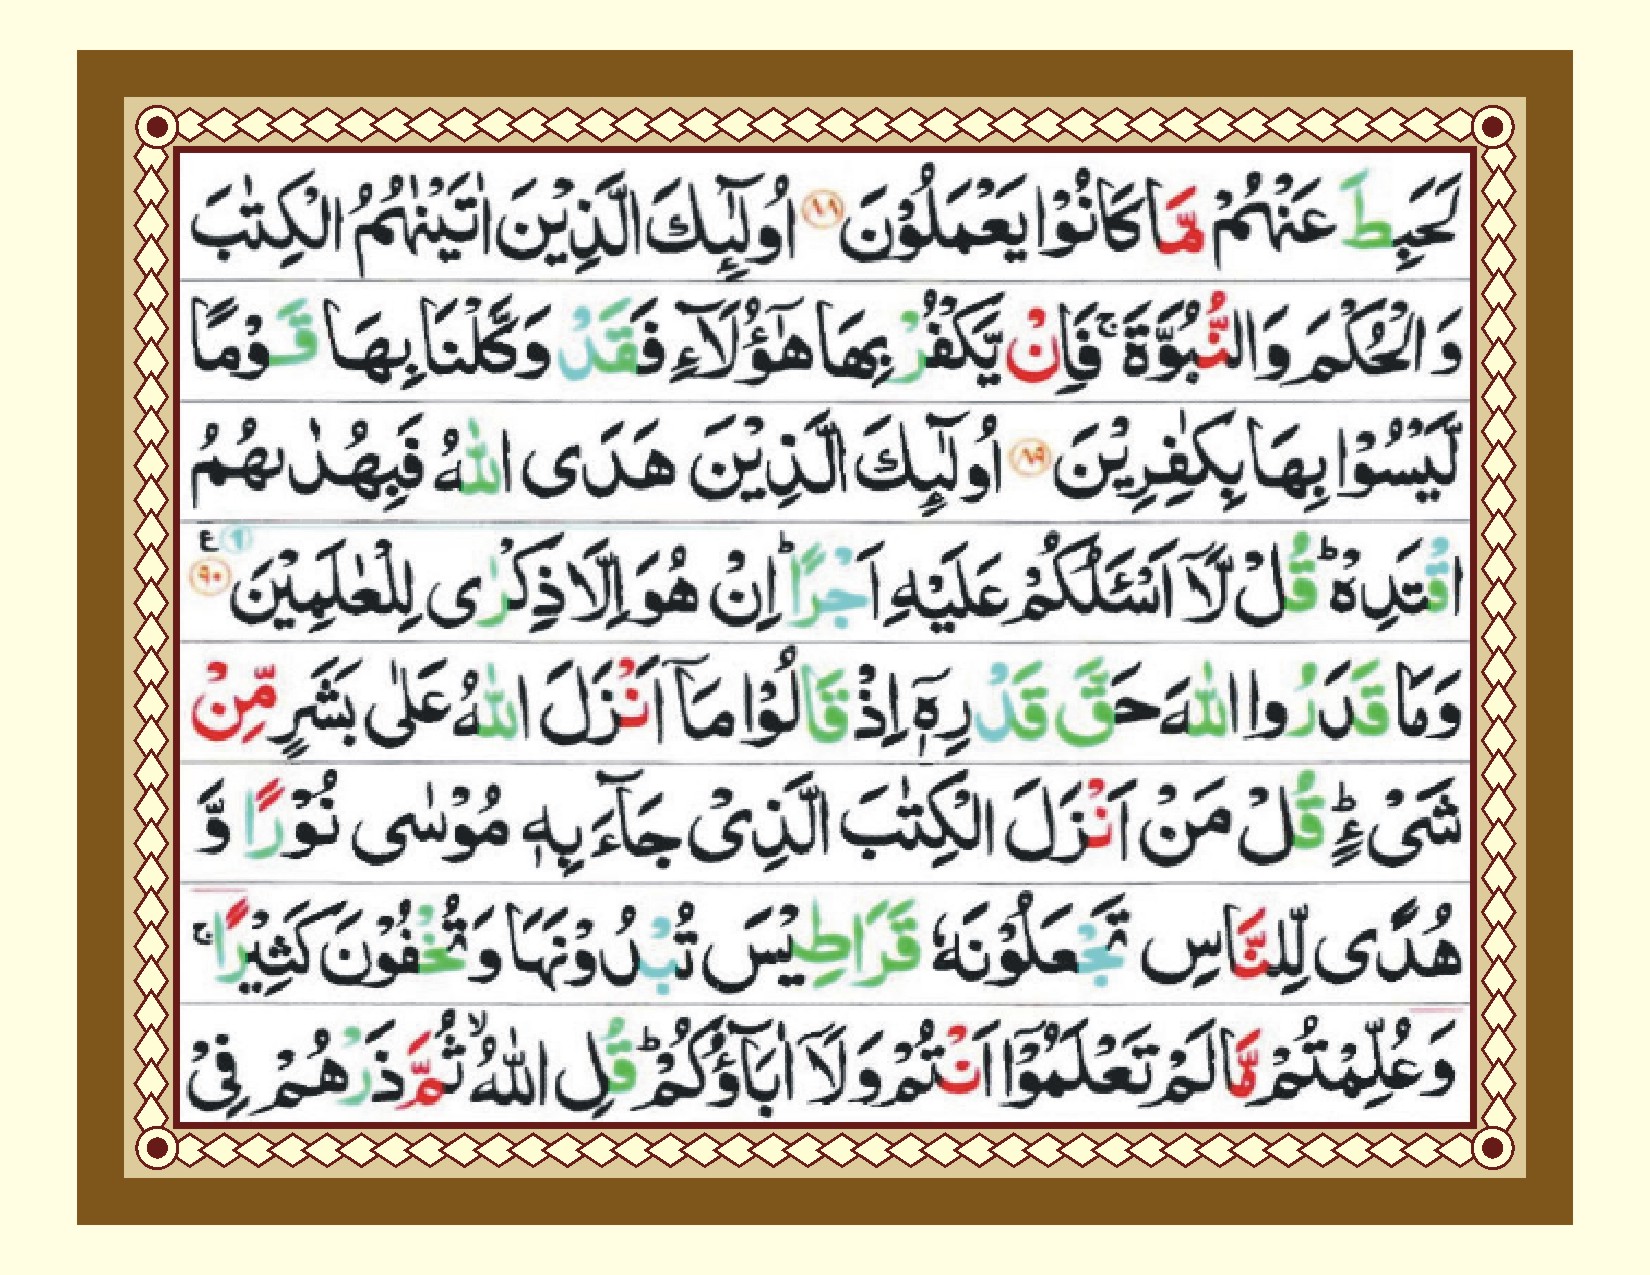 لَحَبِطَ عَنْهُمْ مَّا كَانُوْا يَعْمَلُوْنَ ﴿۸۸﴾ اُولٰٓئِكَ الَّذِيْنَ اٰتَيْنٰهُمُ الْكِتٰبَ
وَالْحُكْمَ وَالنُّبُوَّةَ ۚ فَاِنْ يَّكْفُرْ بِهَا هٰٓؤُلَآءِ فَقَدْ وَكَّلْنَا بِهَا قَوْمًا
لَّيْسُوْا بِهَا بِكٰفِرِيْنَ ﴿۸۹﴾ اُولٰٓئِكَ الَّذِيْنَ هَدَى اللّٰهُ فَبِهُدٰىهُمُ
اقْتَدِهْ ؕ قُلْ لَّآ اَسْـَٔلُكُمْ عَلَيْهِ اَجْرًا ؕ اِنْ هُوَ اِلَّا ذِكْرٰى لِلْعٰلَمِيْنَ ﴿۹۰﴾ ع
وَمَا قَدَرُوا اللّٰهَ حَقَّ قَدْرِهٖٓ اِذْ قَالُوْا مَآ اَنْزَلَ اللّٰهُ عَلٰى بَشَرٍ مِّنْ
شَىْءٍ ؕ قُلْ مَنْ اَنْزَلَ الْكِتٰبَ الَّذِىْ جَآءَ بِهٖ مُوْسٰى نُوْرًا وَّ
هُدًى لِّلنَّاسِ تَجْعَلُوْنَهٗ قَرَاطِيْسَ تُبْدُوْنَهَا وَتُخْفُوْنَ كَثِيْرًا ۚ
وَعُلِّمْتُمْ مَّا لَمْ تَعْلَمُوْٓا اَنْتُمْ وَلَآ اٰبَآؤُكُمْ ؕ قُلِ اللّٰهُ ۙ ثُمَّ ذَرْهُمْ فِىْ